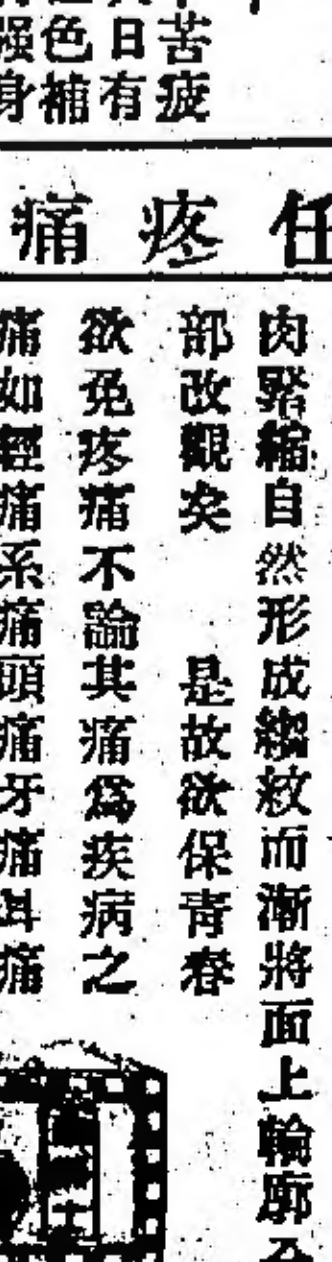 苦疲
日有
色補
强身
任疼痛
肉緊縮自然形成縐紋而漸將面上輪廓全
部改觀矣　是故欲保青春
欲免疼痛不論其痛爲疾病之
痛如經痛系痛頭痛牙痛耳痛